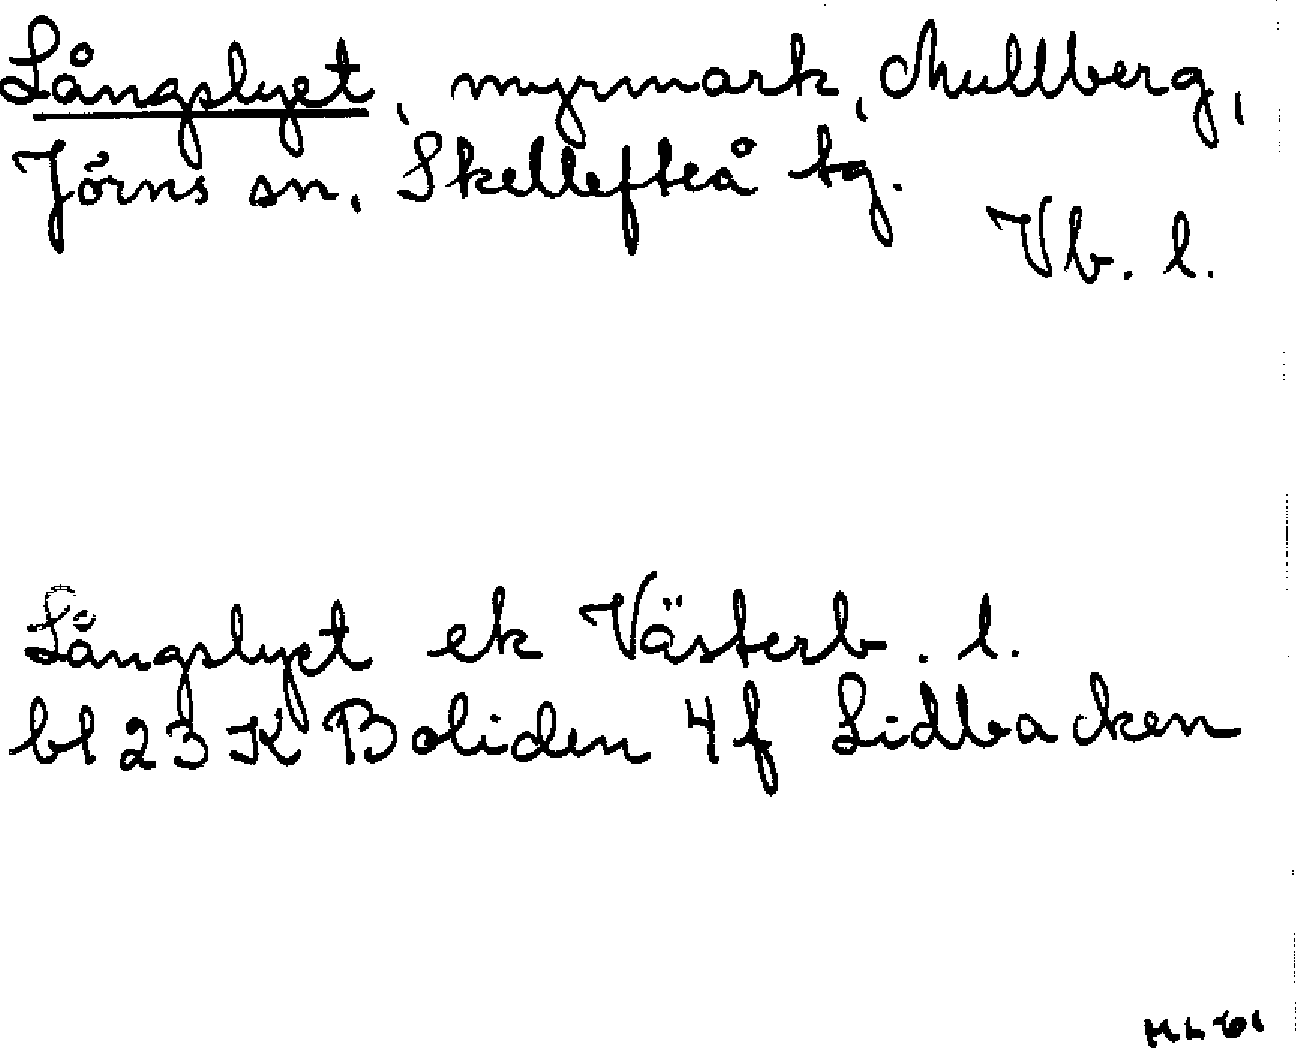 Långslyet, myrmark, Mullberg,
Jörns sn, Skellefteå tg.
Vb. l.
Långslyet ek Västerb. l.
bl 23 K Boliden 4 f Lidbacken